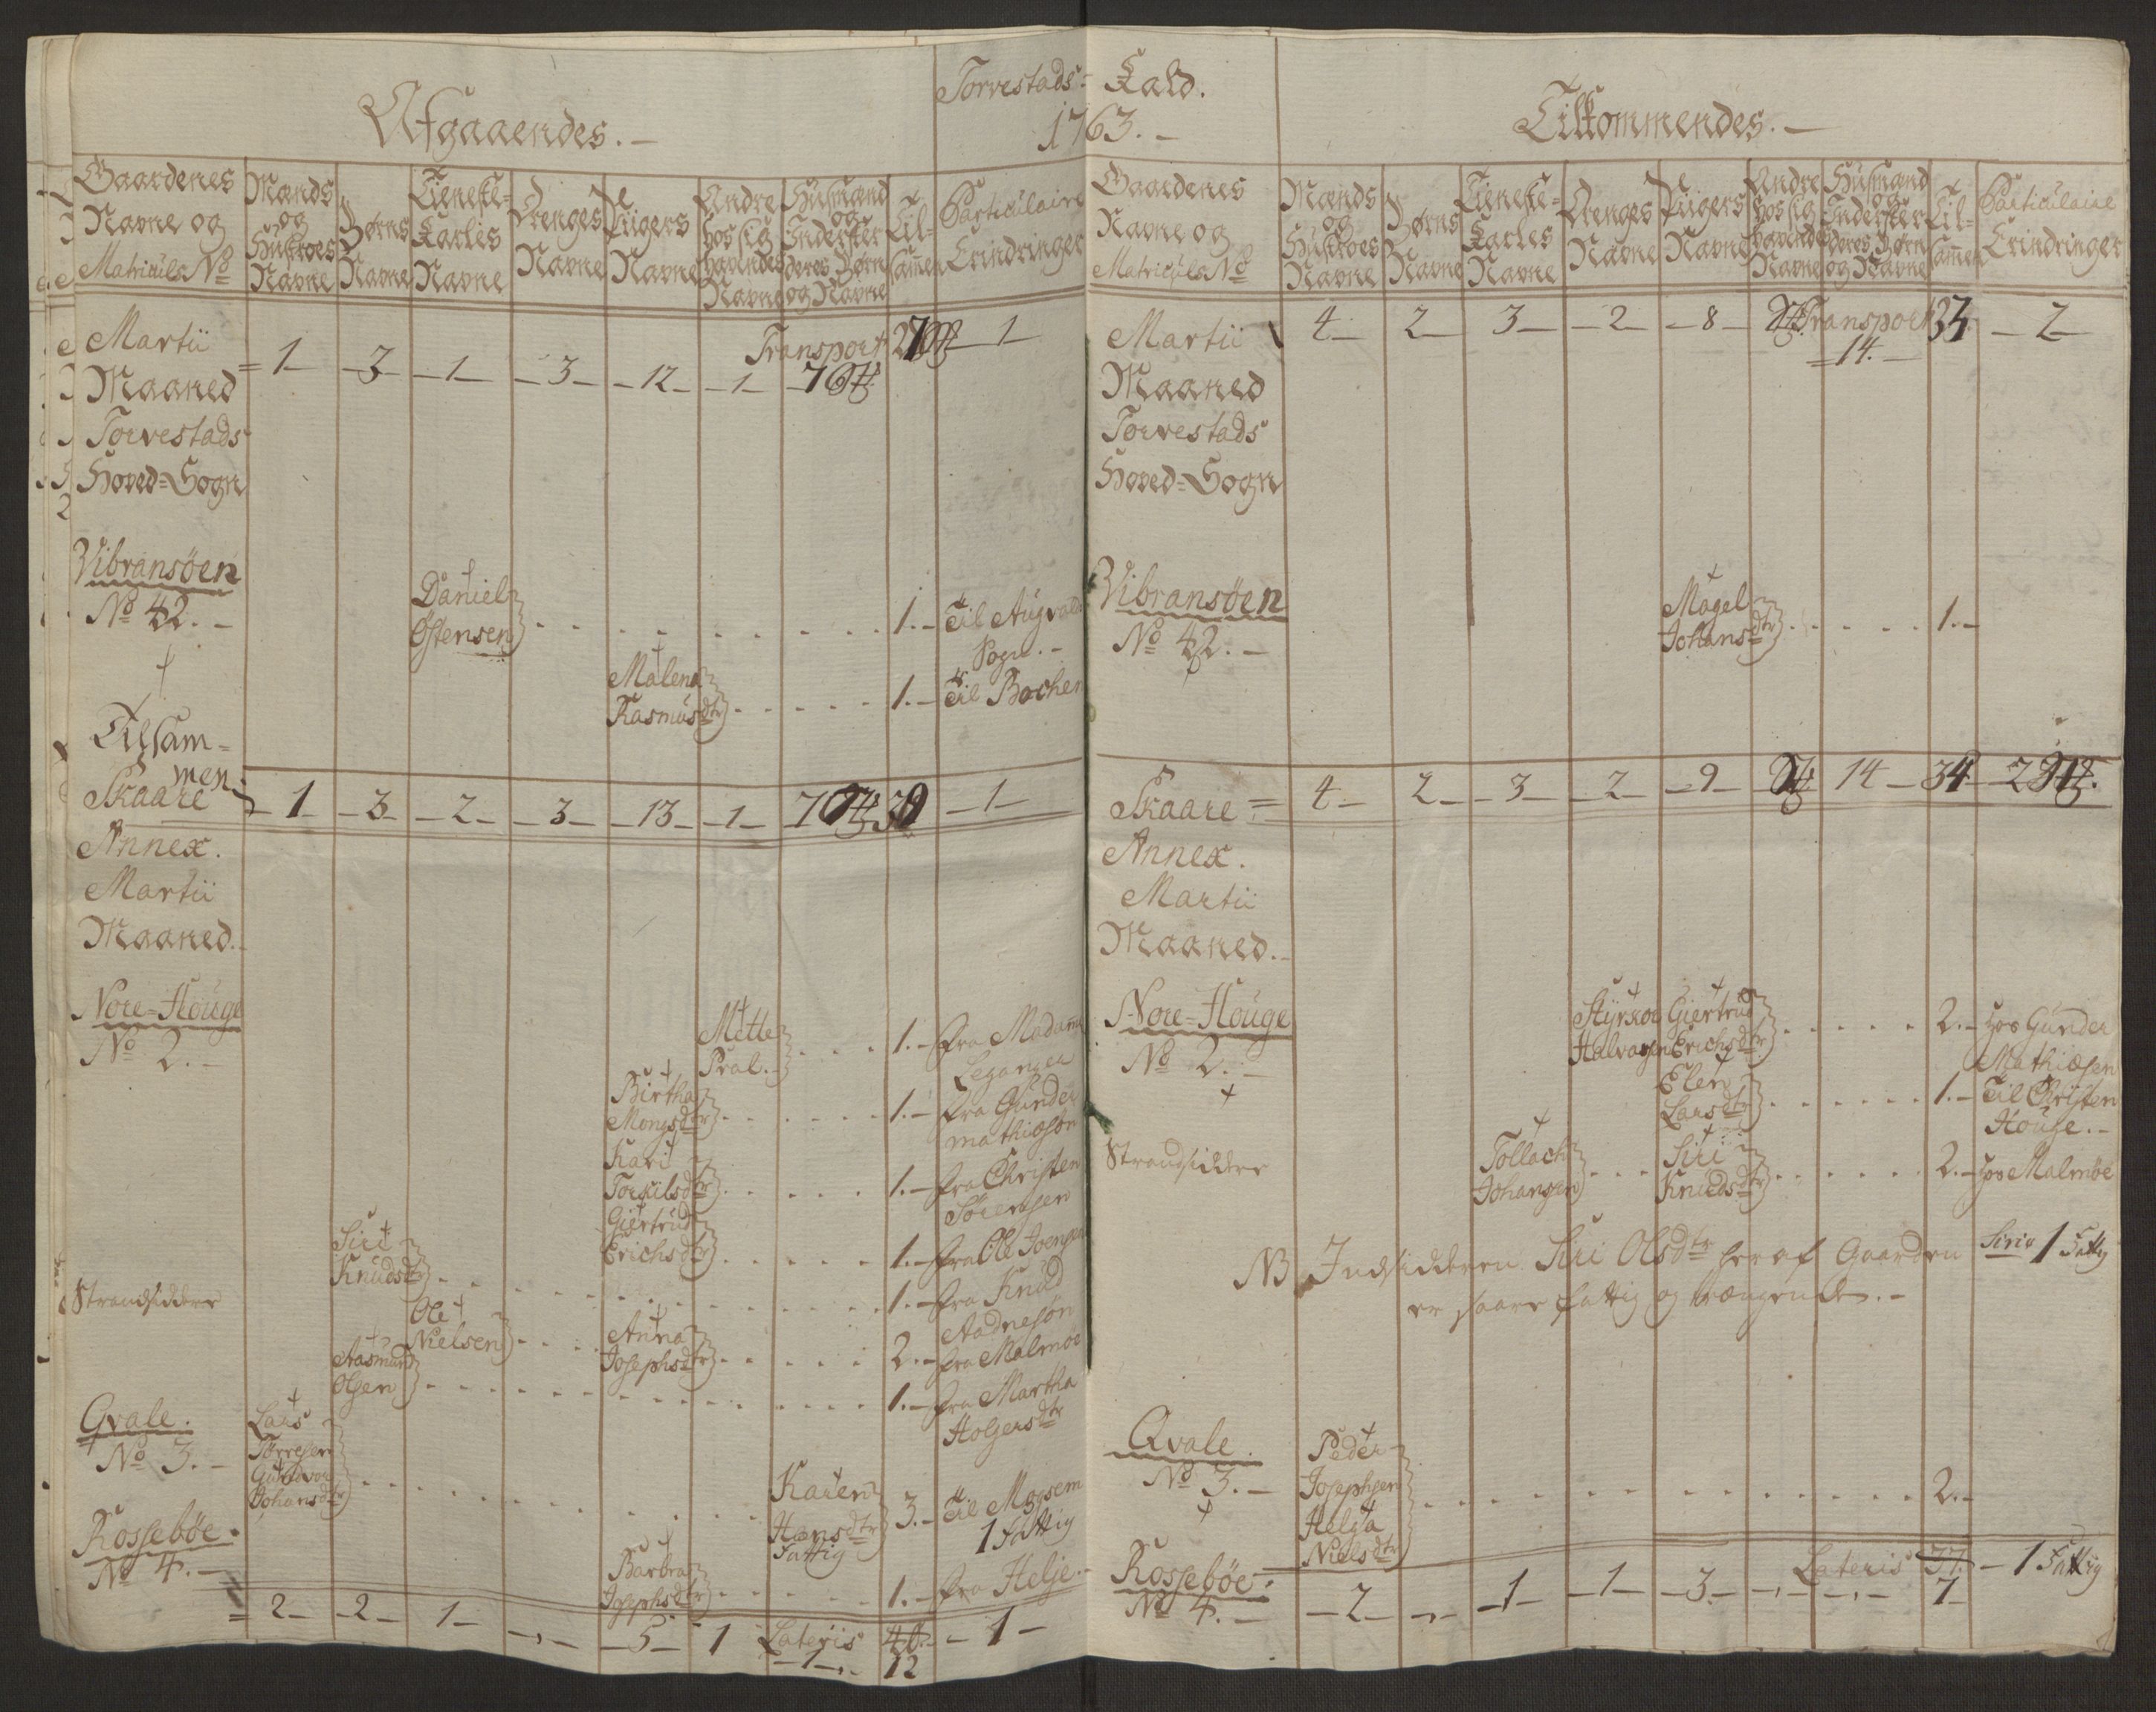 Torvestads- Kald.
1763.-
Afgaaendes.-
Gaardenes
Navne og
Matriculs No
Mands
og
Hustroes
Navne
Børns
Navne
Tieneste-
Karles
Navne
Drenges
Navne
Piigers
Navne
Andre
hos sig
havendes
Navne
Husmænd
og
Inderster
deres Børn
og Navne
Til-
sammen
Particulaire
Erindringer
Martii
Maaned
Torvestads
Hoved-Sogn
Transport
1 - 3 - 1 - 3 - 12 - 1 - 7 27 - 1 -
Vibransöen
No 42.-
Daniel
Østensen 1.- Til Augvalds
Sogn.-
Malena
Rasmusdtr 1.- Til Bochen
Tilsam-
men
- 1 - 3 - 2 - 3 - 13 - 1 - 7 - 1 -
Skaare
Annex.
Martii
Maaned.-
Nore-Houge
No 2.-
Mette
Pral. 1.- fra Madame
Leganger
Birtha
Mongsdtr 1.- fra Gunder
Mathiesøn
Kari
Torkilsdtr 1.- fra Christen
Sørensen
Giertrud
Erichsdtr 1.- fra Ole Joensen
Siri
Knudsdtr 1.- fra Knud
Aadnesøn
Strandsiddere
Ole
Nielsen
Anna
Josephsdtr 2.- fra Malmøe
Aasmund
Olsen 1.- fra Martha
Holgersdtr
Qvale.
No 3.-
Lars
Torresen
Johansdtr
Karen
Hansdtr
Fattig 3.- Til
1 Fattig
Rossebøe.
No 4.-
Barbra
Josephsdtr 1.- fra Helje
- 2 - 2 - 1 - " - 5 - 1 Lateris 40 - 1 -
- 1 - 12
Tilkommendes.-
Gaardenes
Navne og
Matriculs No
Mands
og
Hustroes
Navne
Børns
Navne
Tieneste-
Karles
Navne
Drenges
Navne
Piigers
Navne
Andre
hos sig
havende
Navne
Husmænd
og
Inderster
deres Børn
og Navne
Til-
sammen
Particulaire
Erindringer
Martii
Maaned
Torvestads
Hoved-Sogn
4 - 2 - 3 - 2 - 8 - Transport - 2 -
- 14.-
Vibransöen
No 42.-
Magel
Johansdtr 1.-
4 - 2 - 3 - 2 - 9 - 14 - 34 - 2
Skaare
Annex.
Martii
Maaned.-
Nore-Houge
No 2.-
Styrkor Giertrud
Halvorsen Erichsdtr 2.- hos Gunder
Mathiesen
Elen
Larsdtr 1.- Til Christen
Houge.-
Strandsiddere
Tollach
Johansen
Siri
Knudsdtr 2.- hos Malmøe
NB Indsidderen Siri Olsdtr her af Gaarden
er saare fattig og trængende.-
1 Fattig
Qvale.
No 3.-
Peder
Josephsen
Helga
Nielsdtr 2.-
Rossebøe.
No 4.-
- 2 - " - 1 - 1 - 3 - " - Lateris 37 - 1 Fattig
- " - 7